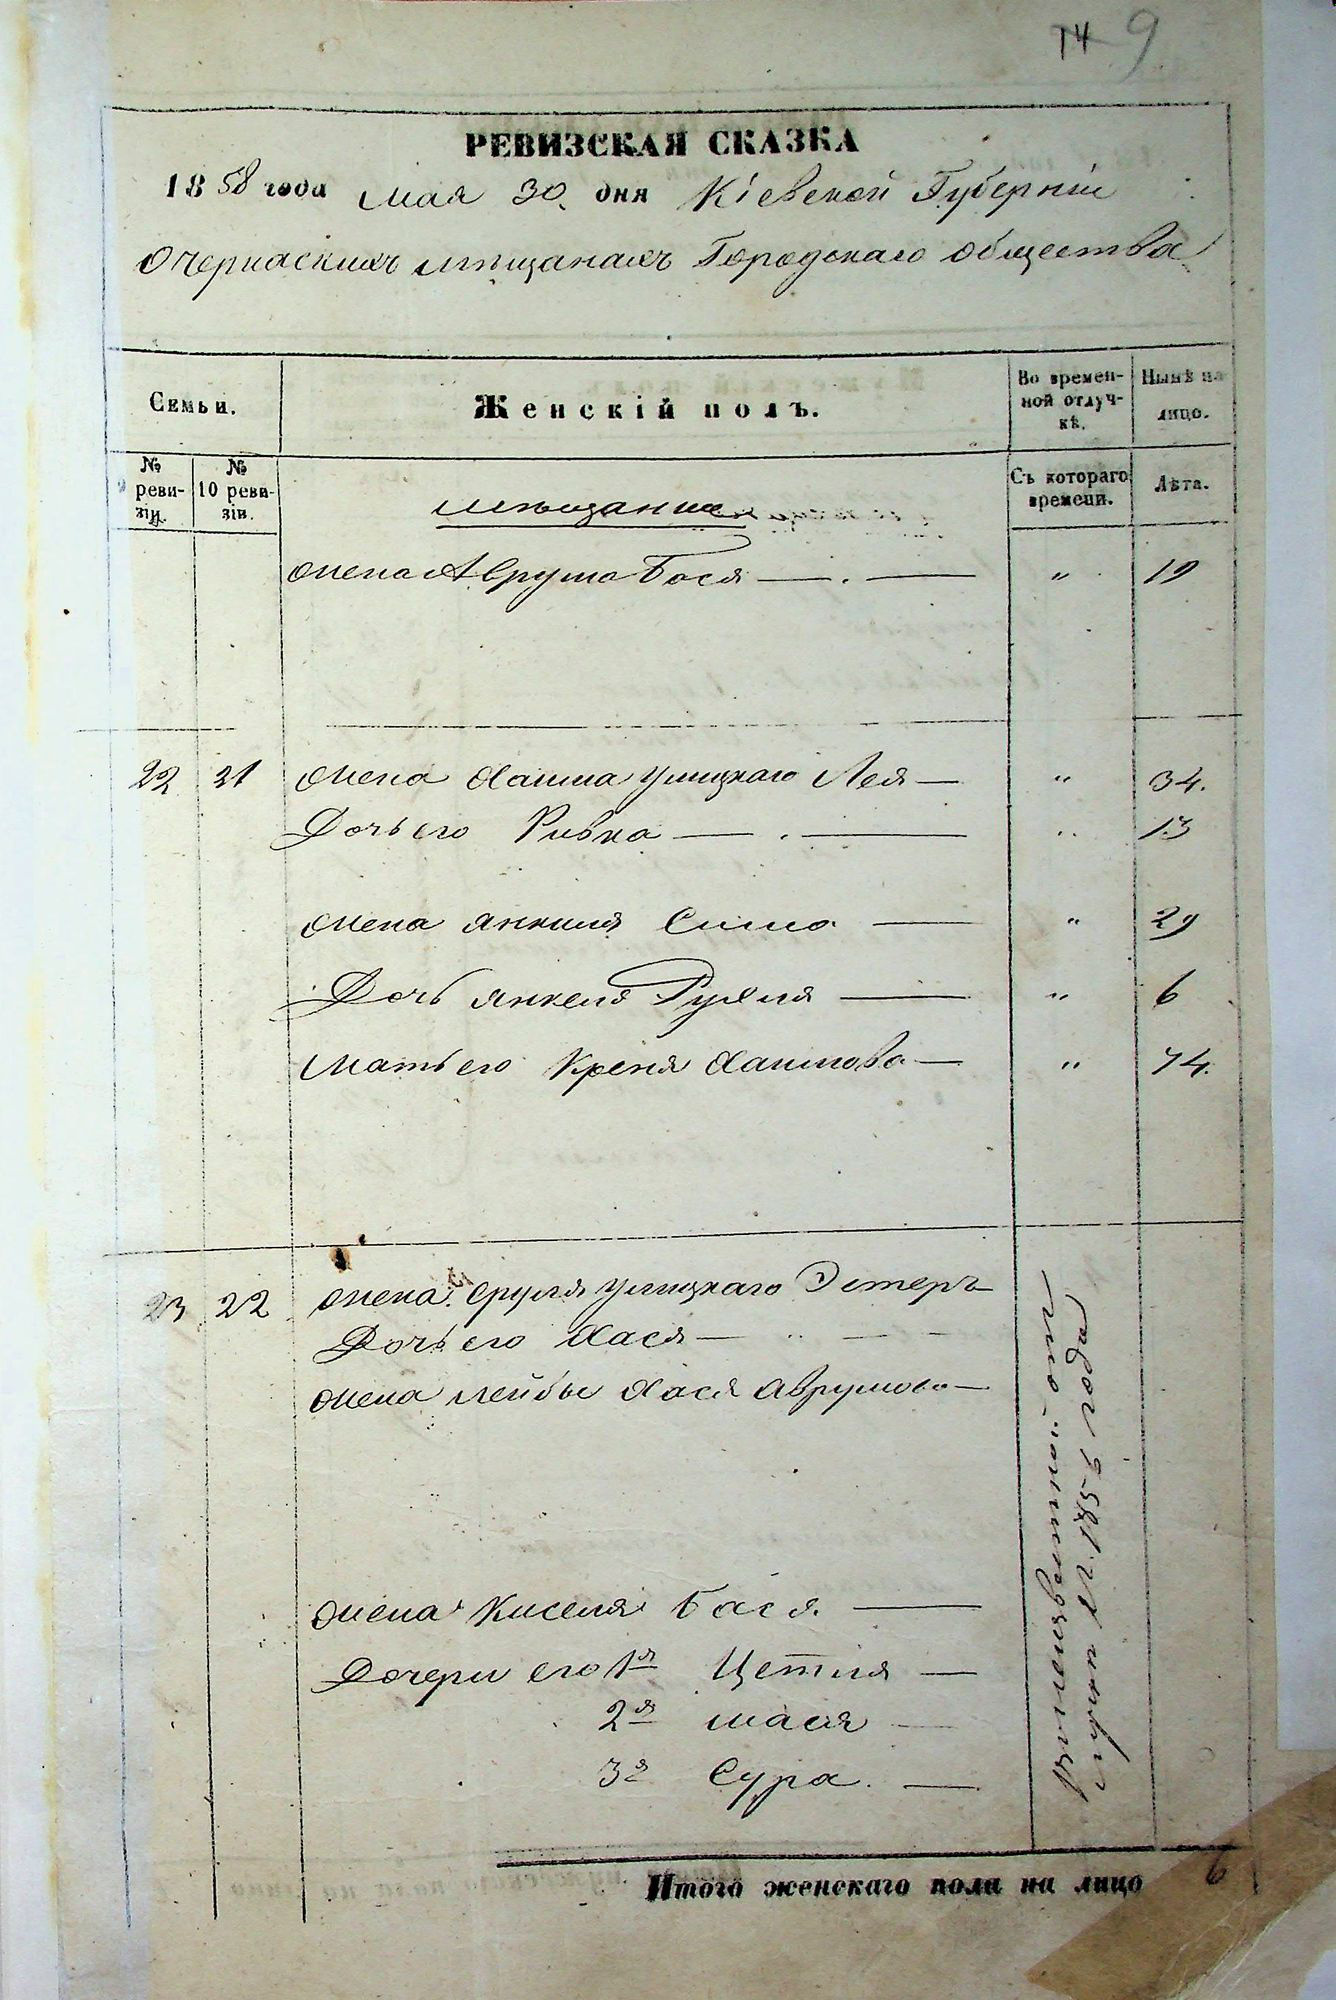 14 9
РЕВИЗСКАЯ СКАЗКА
1858 года мая 30 дня Кіевской Губерніи
О черкаскихъ мѣщанахъ Городскаго общества
Семьи.
Женскій полъ.
Во времен-
ной отлуч-
кѣ.
Нынѣ на
лицо.
№
реви-
зіи.
№
10 реви-
зіи.
Съ котораго
времени.
Лѣта.
мѣщане
жена Аврума Бася — . — " 19
22 21 жена Хаима Улицкаго Лея — " 34.
Дочь его Ривка — . — " 13
жена Янкиля Сима — " 29
Дочь Янкеля Рухля — " 6
Мать его Крейня Хаимова — " 74.
23 22 жена Сруля Улицкаго Эстеръ
Дочь его Хася — " —
жена Лейбы Хася Аврумова —
жена Киселя Бася. —
Дочери его 1я Цетля —
2я Шася —
3я Сура. —
въ неизвѣстной от
лучкѣ съ 1856 года
Итого женскаго пола на лицо 6